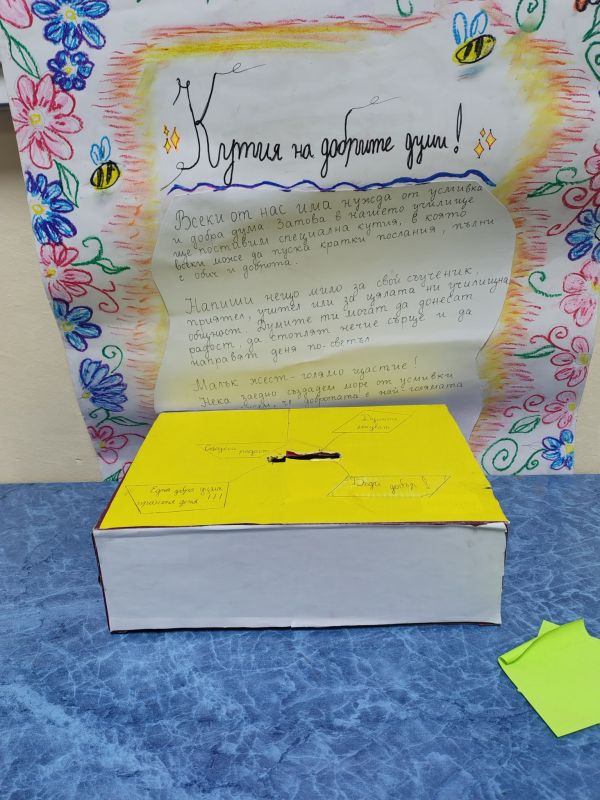 Кутия на добрите думи!
Всеки от нас има нужда от усмивка
и добра дума. Затова в нашето училище
ще поставим специална кутия, в която
всеки може да пуска кратки послания, пълни
с обич и доброта.
Напиши нещо мило за свой съученик,
приятел, учител или за цялата ни училищна
общност. Думите ти могат да донесат
радост, да стоплят нечие сърце и да
направят деня по-светъл
Малък жест - голямо щастие!
Нека заедно създадем море от усмивки
че добротата е най-голямата
Думите
лекуват
Сподели радост
Една добра дума
променя деня !!!
Бъди добър!